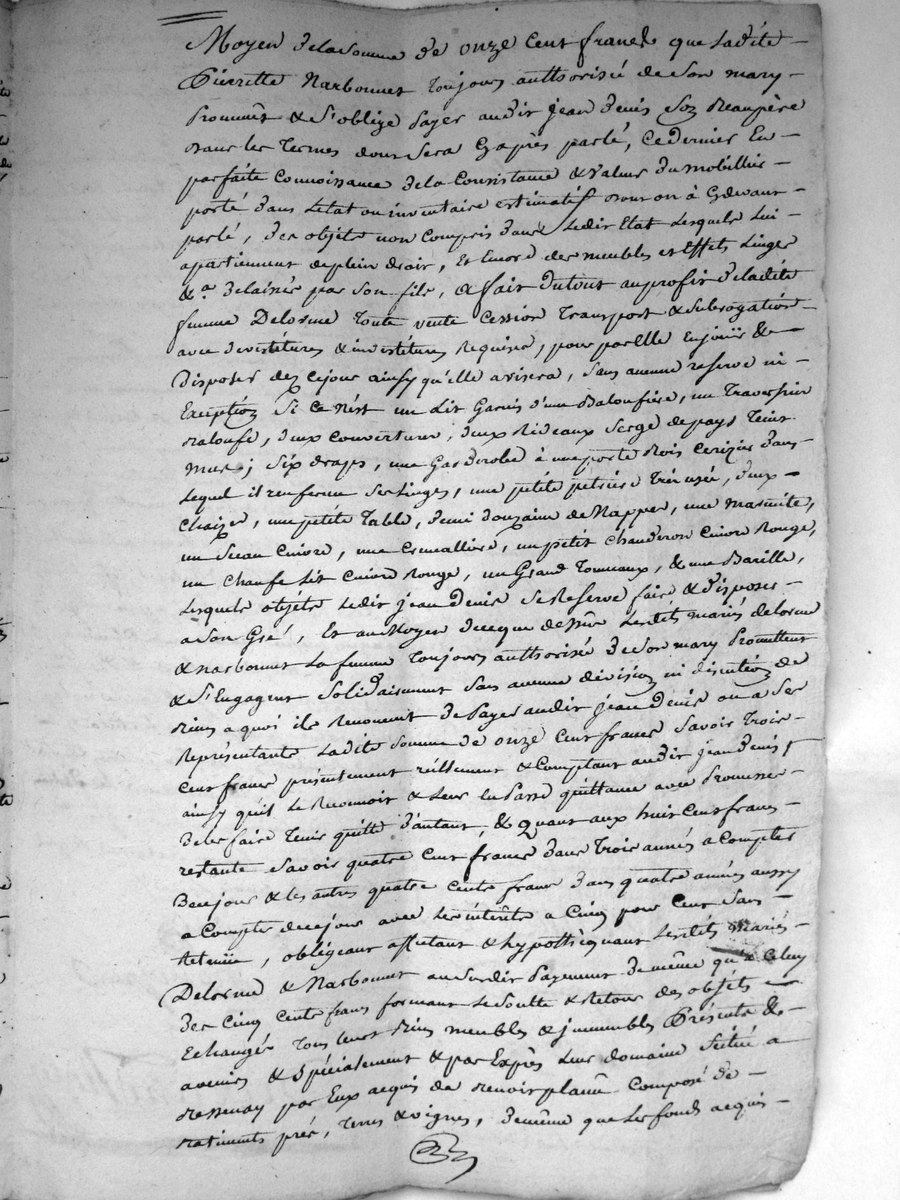 Moyen de la somme de onze cent francs que ladite
Pierrette Narbonnet toujours authorisée de son mary
Prommêt & s'oblige Payer audit jean denis son Beaupère
dans les termes dont sera Cy après parlé, ce dernier En
parfaite Connoissance de la Consistance & valeur du mobillier
porté dans L'état ou inventaire estimatif dont on à Cydevant
parlé, des objets non compris dans Ledit Etat Lesquels lui
apartiennent de plein droit, et Encore des meubles et Effets Linges
&.a delaissés par son fils, a fait du tout au profit de ladite
femme Delorme toute vente Cession Transport & subrogation
avec devestitures & investitures Requises, pour par Elle En joüir &
Disposer dez cejour ainsy qu'elle avisera, sans aucune reserve ni
Exception si ce n'est un Lit Garnis d'une Baloufière, un Traversin
Baloufe, deux couvertures, deux Rideaux serge de pays teint
musc; six draps, une Garderobe à une porte Bois Cerizier dans
Lequel il renferme ses Linges, une petite petrière Très usée, deux
chaises, une petite Table, demi douzaine de Nappes, une marmite,
un Seau Cuivre, une Cremallière, un petit chauderon Cuivre Rouge,
un chaufe Lit Cuivre Rouge, un Grand Tonneaux, & une Barille,
Lesquels objets Ledit jean Denis se Reserve faire & disposer
a son Gré, Et au Moyen de ce que dessus Lesdits mariés delorme
& narbonnet La femme Toujours authorisée de son mary Promettent
& s'Engagent Solidairement sans aucune division ni discution de
Biens a quoi ils Renoncent de Payer audit jean Denis ou a ses
Représentants Ladite somme de onze Cent francs savoir Trois
Cent francs présentement réellement & Comptant audit jean Denis
ainsy qu'il le Reconnoit & Leur en Passe quittance avec Promesse
de les faire Tenir quitte d'autant, & Quant aux huit Cent francs
restants savoir quatre Cent francs dans Trois années a Compter
de ce jour & les autres quatre Cents francs dans quatre années aussy
a Compter de ce jour avec Les intérêts a Cinq pour Cent sans
Retenüe, obligeant affectant & hypothèquant Lesdits mariés
Delorme & Narbonnet au susdit Payement de même qu'a Celuy
des Cinq Cents francs formant Le Soulte & Retour des objets
Echangés Tous leurs Biens meubles & immeubles Présents &
avenirs & spécialement & par Exprès Leur domaine Scitué a
par Eux acquis de Composé de
Batiments près, terres & vignes, de même que Les fonds acquis